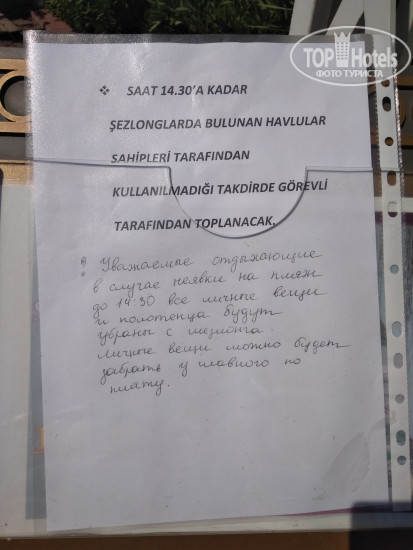 TOPHotels
ФОТО ТУРИСТА
❖ SAAT 14.30'A KADAR
ŞEZLONGLARDA BULUNAN HAVLULAR
SAHİPLERİ TARAFINDAN
KULLANILMADIĞI TAKDİRDE GÖREVLİ
TARAFINDAN TOPLANACAK.
Уважаемые отдыхающие
в случае неявки на пляж
до 14:30 все личные вещи
и полотенца будут
убраны с шезлонга.
Личные вещи можно будет
забрать у главного по
пляжу.